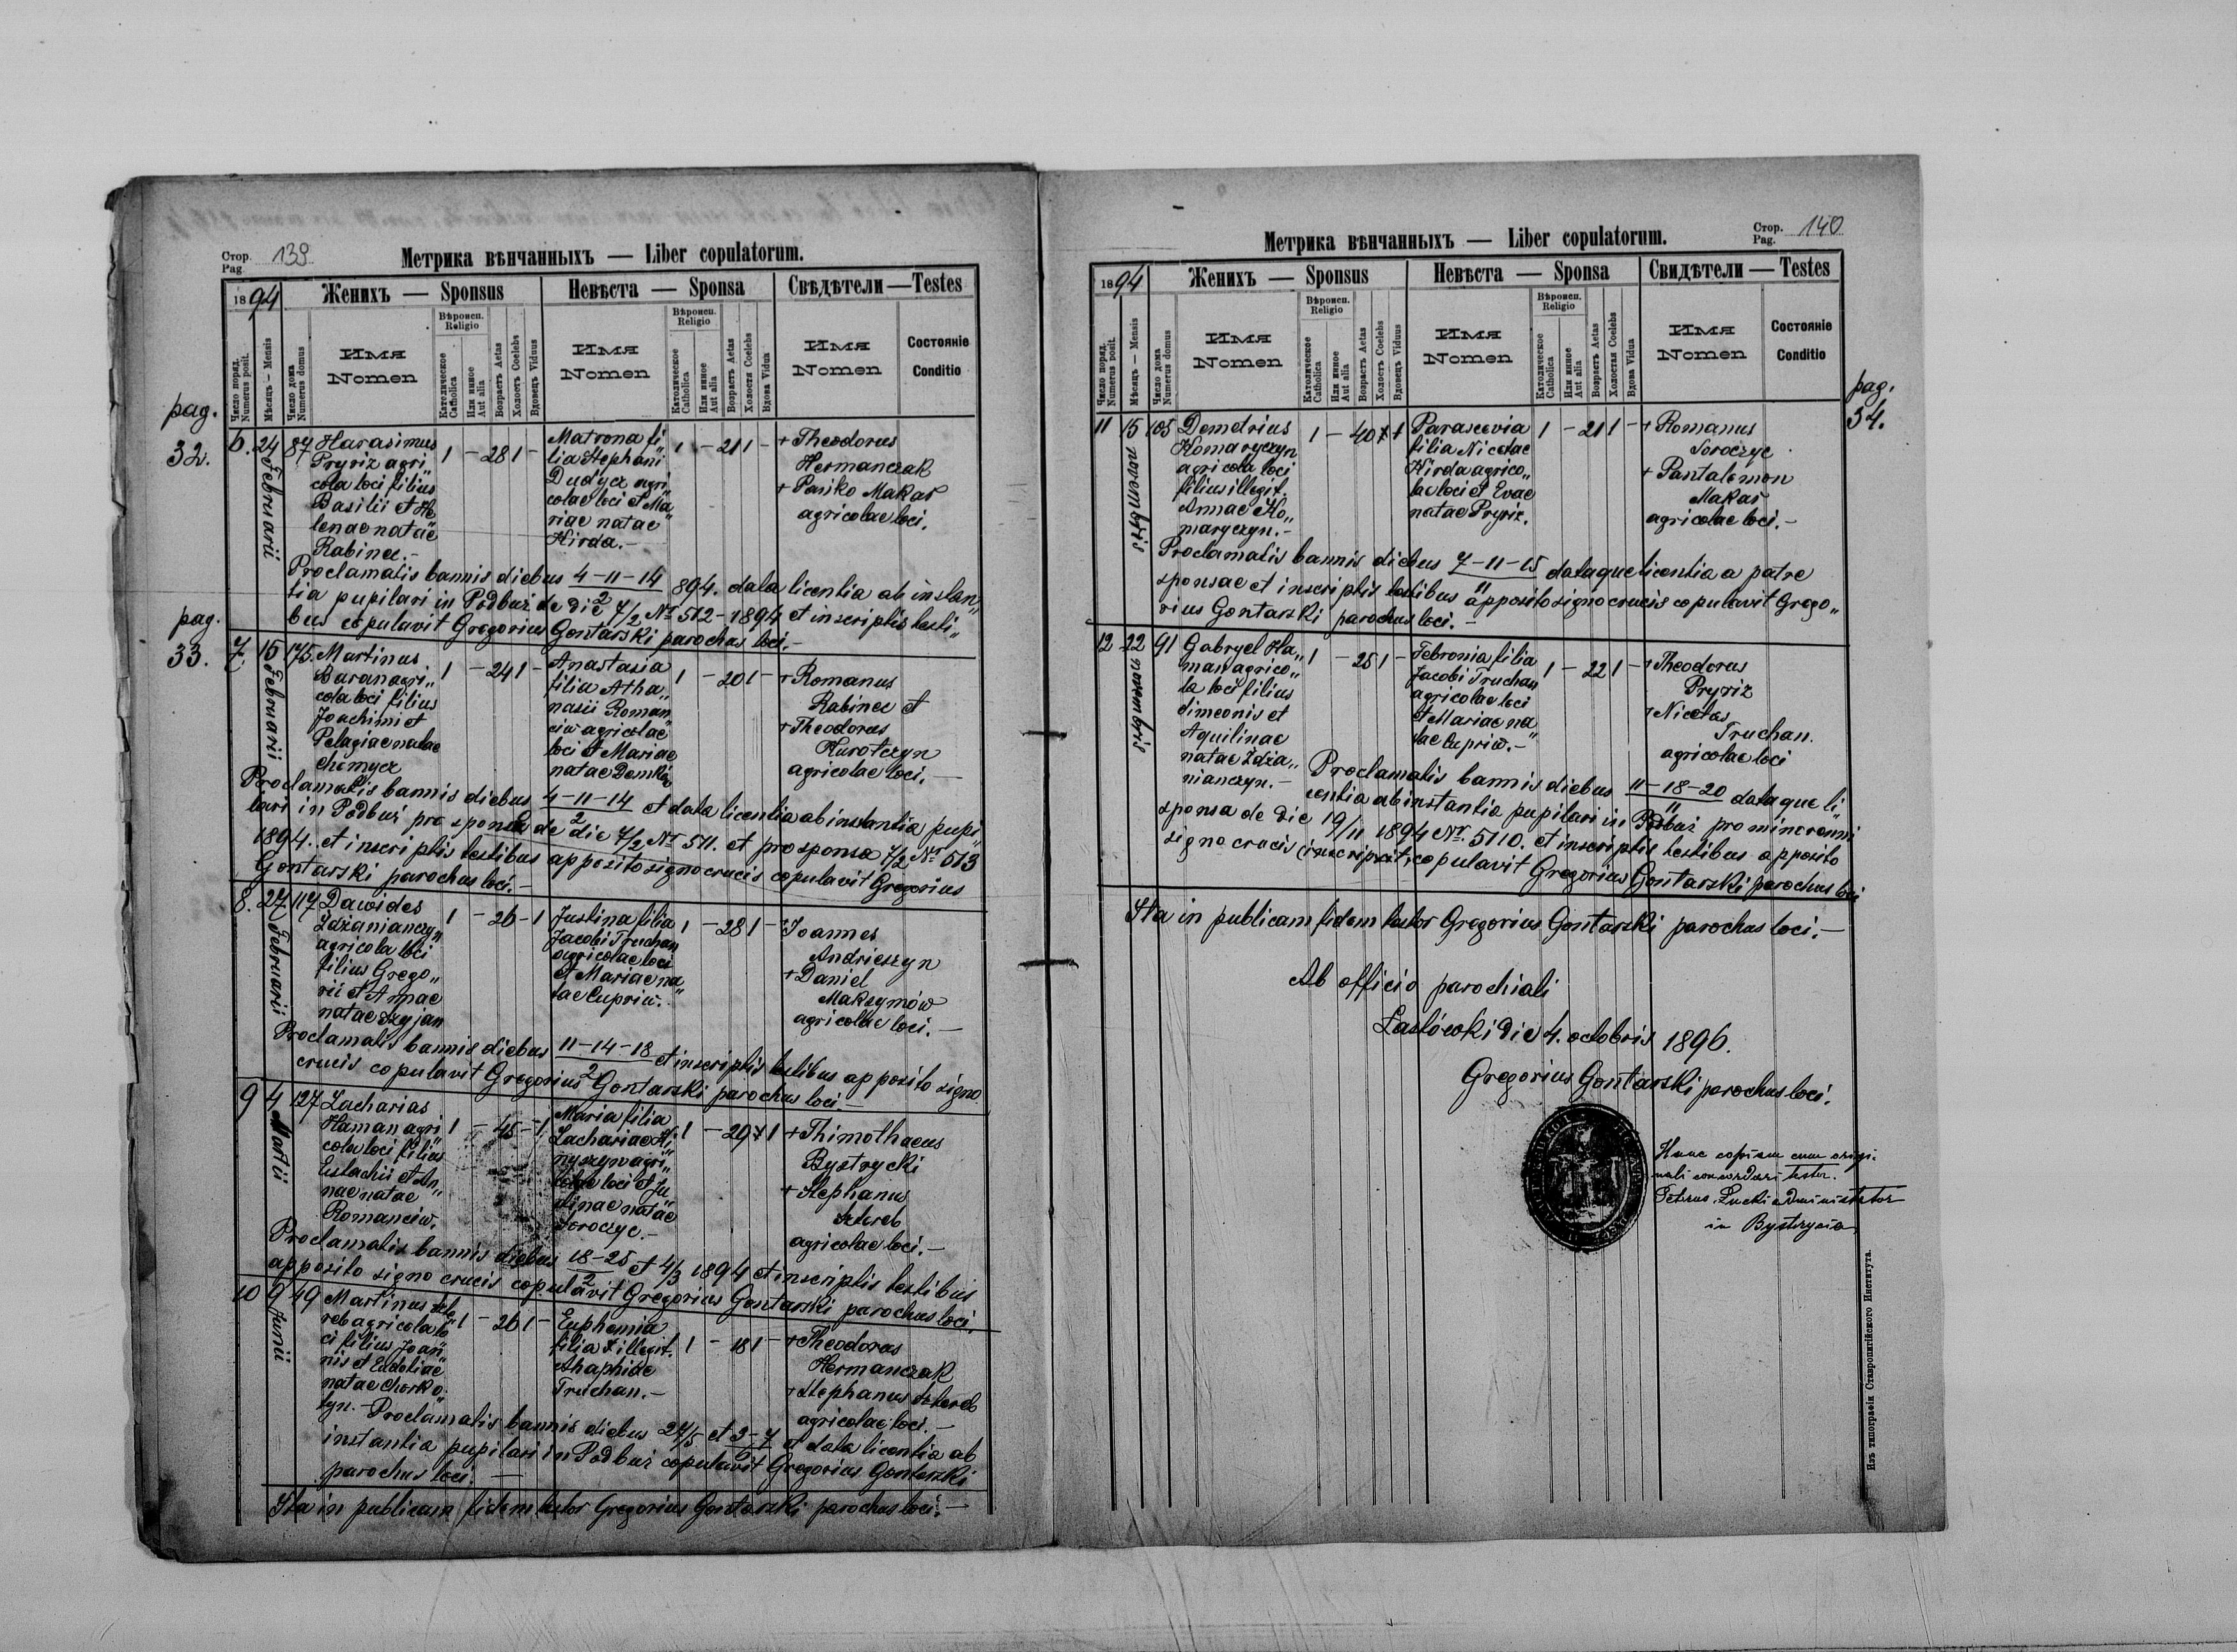 Стор.
Pag. 139
Метрика вѣнчанныхъ — Liber copulatorum.
1894
Женихъ — Sponsus
Невѣста — Sponsa
Свѣдѣтели — Testes
Число поряд. Numerus posit.
Мѣсяцъ — Mensis
Число дома Numerus domus
Имя
Nomen
Вѣроисп.
Religio
Католическое Catholica
Или инное Aut alia
Возрастъ Aetas
Холостъ Coelebs
Вдовецъ Viduus
Имя
Nomen
Вѣроисп.
Religio
Католическое Catholica
Или инное Aut alia
Возрастъ Aetas
Холостая Coelebs
Вдова Vidua
Имя
Nomen
Состояніе
Conditio
pag.
32.
6. 24 Februarii 87
Harasimus
Pryriz agri„
cola loci filius
Basilii et He„
lenae natae
Rabinec.-
1 - 28 1 -
Matrona fi„
lia Stephani
Dudycz agri„
colae loci et Ma„
riae natae
Hirda.-
1 - 21 1 -
+ Theodorus
Hermanczak
+ Pasiko Makar
agricolae loci.
Proclamatis bannis diebus 4-11-14/2 894. data licentia ab instan„
tia pupilari in Podbuż de die 7/2 Nr 512-1894 et inscriptis testi„
bus copulavit Gregorius Gontarski parochus loci.-
pag.
33.
7. 15 Februarii 175
Martinus
Baran agri„
cola loci filius
Joachimi et
Pelagiae natae
Chemycz
1 - 24 1 -
Anastasia
filia Atha„
nasii Roman
ciw agricolae
loci et Mariae
natae Demkiw
1 - 20 1 -
+ Romanus
Rabinec et
+ Theodorus
Kurotczyn
agricolae loci.-
Proclamatis bannis diebus 4-11-14/2 et data licentia ab instantia pupi„
lari in Podbuż pro sponso de die 7/2 Nr 571. et pro sponsa 7/2 Nr 513
1894. et inscriptis testibus apposito signo crucis copulavit Gregorius
Gontarski parochus loci.-
8. 27 Februarii 117
Dawides
Zdżanianczyn
agricola loci
filius Grego„
rii et Annae
natae Szyjan
1 - 26 - 1
Justina filia
Jacobi Truchan
agricolae loci
et Mariae na„
tae Cupriw.
1 - 28 1 -
+ Joannes
Andrieszyn
+ Daniel
Maksymów
agricolae loci.-
Proclamatis bannis diebus 11-14-18/2 et inscriptis testibus apposito signo
crucis copulavit Gregorius Gontarski parochus loci.-
9 4 Martii 127
Zacharias
Haman agri„
cola loci filius
Eustachii et An„
nae natae
Romanciw.
1 - 45 - 1
Maria filia
Zachariae
agri„
colae loci et Ju„
stinae natae
Soroczyc.-
1 - 29 1
+ Thimothaeus
Bystrycki
+ Stephanus
Sztereb
agricolae loci.-
Proclamatis bannis diebus 18-25/2 et 4/3 1894 et inscriptis testibus
apposito signo crucis copulavit Gregorius Gontarski parochus loci.
10 9 Junii 49
Martinus Szte„
reb agricola lo„
ci filius Joan„
nis et Eudoliae
natae Chorko„
tyn.-
1 - 26 1 -
Euphemia
filia illegit.
Ahaphiae
Truchan.-
1 - 18 1 -
+ Theodorus
Hermanczak
+ Stephanus Sztereb
agricolae loci.-
Proclamatis bannis diebus 27/5 et 3-7/6 et data licentia ab
instantia pupilari in Podbuż copulavit Gregorius Gontarski
parochus loci.-
Ita in publicam fidem testor Gregorius Gontarski parochus loci.-
Стор.
Pag. 140
Метрика вѣнчанныхъ — Liber copulatorum.
1894
Женихъ — Sponsus
Невѣста — Sponsa
Свидѣтели — Testes
Число поряд. Numerus posit.
Мѣсяцъ — Mensis
Число дома Numerus domus
Имя
Nomen
Вѣроисп.
Religio
Католическое Catholica
Или инное Aut alia
Возрастъ Aetas
Холостъ Coelebs
Вдовецъ Viduus
Имя
Nomen
Вѣроисп.
Religio
Католическое Catholica
Или инное Aut alia
Возрастъ Aetas
Холостая Coelebs
Вдова Vidua
Имя
Nomen
Состояніе
Conditio
pag.
34.
11 15 novembris 105
Demetrius
Komaryczyn
agricola loci
filius illegit.
Annae Ko„
maryczyn.-
1 - 40 1
Parascevia
filia Nicolae
Hirda agrico„
lae loci et Evae
natae Pryriz.
1 - 21 1 -
+ Romanus
Soroczyc
+ Pantalemon
Makar
agricolae loci.-
Proclamatis bannis diebus 7-11-15/11 dataque licentia a patre
sponsae et inscriptis testibus apposito signo crucis copulavit Grego„
rius Gontarski parochus loci.-
12 22 novembris 91
Gabryel Ha„
man agrico„
la loci filius
Simeonis et
Aquilinae
natae Zdża„
nianczyn.-
1 - 25 1 -
Febronia filia
Jacobi Truchan
agricolae loci
et Mariae na„
tae Cupriw.-
1 - 22 1 -
+ Theodorus
Pryriz
+ Nicolas
Truchan.
agricolae loci
Proclamatis bannis diebus 11-18-20/11 dataque li„
centia ab instantia pupilari in Podbuż pro minorenni
sponsa de die 19/11 1894 Nr. 5110. et inscriptis testibus apposito
signo crucis copulavit Gregorius Gontarski parochus loci
Ita in publicam fidem testor Gregorius Gontarski parochus loci.-
Ab officio parochiali
Lastówki die 4. octobris 1896.
Gregorius Gontarski parochus loci.
Hanc copiam cum origi-
nali concordari testor.
Petrus Lucki administrator
in Bystrycia
Изъ типографіи Ставропигійского Института.